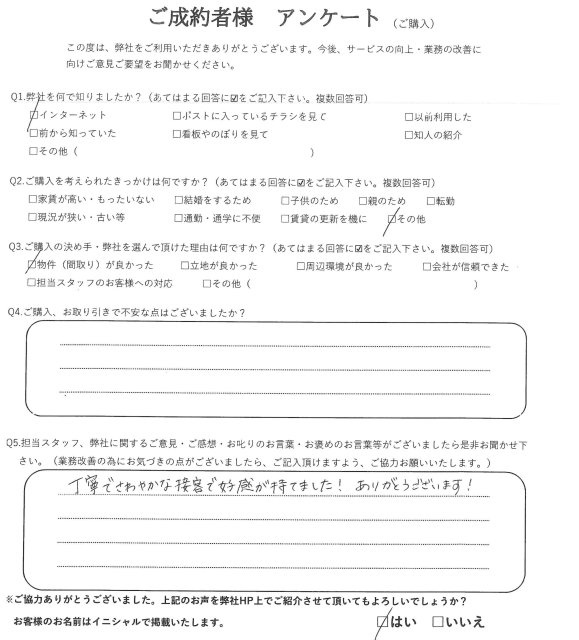 ご成約者様　アンケート（ご購入）
この度は、弊社をご利用いただきありがとうございます。今後、サービスの向上・業務の改善に
向けご意見ご要望をお聞かせください。
Q1.弊社を何で知りましたか？（あてはまる回答に☑をご記入下さい。複数回答可）
☑インターネット　□ポストに入っているチラシを見て　□以前利用した
□前から知っていた　□看板やのぼりを見て　□知人の紹介
□その他（　）
Q2.ご購入を考えられたきっかけは何ですか？（あてはまる回答に☑をご記入下さい。複数回答可）
□家賃が高い・もったいない　□結婚をするため　□子供のため　□親のため　□転勤
□現況が狭い・古い等　□通勤・通学に不便　□賃貸の更新を機に　☑その他
Q3.ご購入の決め手・弊社を選んで頂けた理由は何ですか？（あてはまる回答に☑をご記入下さい。複数回答可）
☑物件（間取り）が良かった　□立地が良かった　□周辺環境が良かった　□会社が信頼できた
□担当スタッフのお客様への対応　□その他（　）
Q4.ご購入、お取り引きで不安な点はございましたか？
Q5.担当スタッフ、弊社に関するご意見・ご感想・お叱りのお言葉・お褒めのお言葉等がございましたら是非お聞かせ下
さい。（業務改善の為にお気づきの点がございましたら、ご記入頂けますよう、ご協力お願いいたします。）
丁寧でさわやかな接客で好感が持てました！ ありがとうございます！
※ご協力ありがとうございました。上記のお声を弊社HP上でご紹介させて頂いてもよろしいでしょうか？
お客様のお名前はイニシャルで掲載いたします。　☑はい　□いいえ